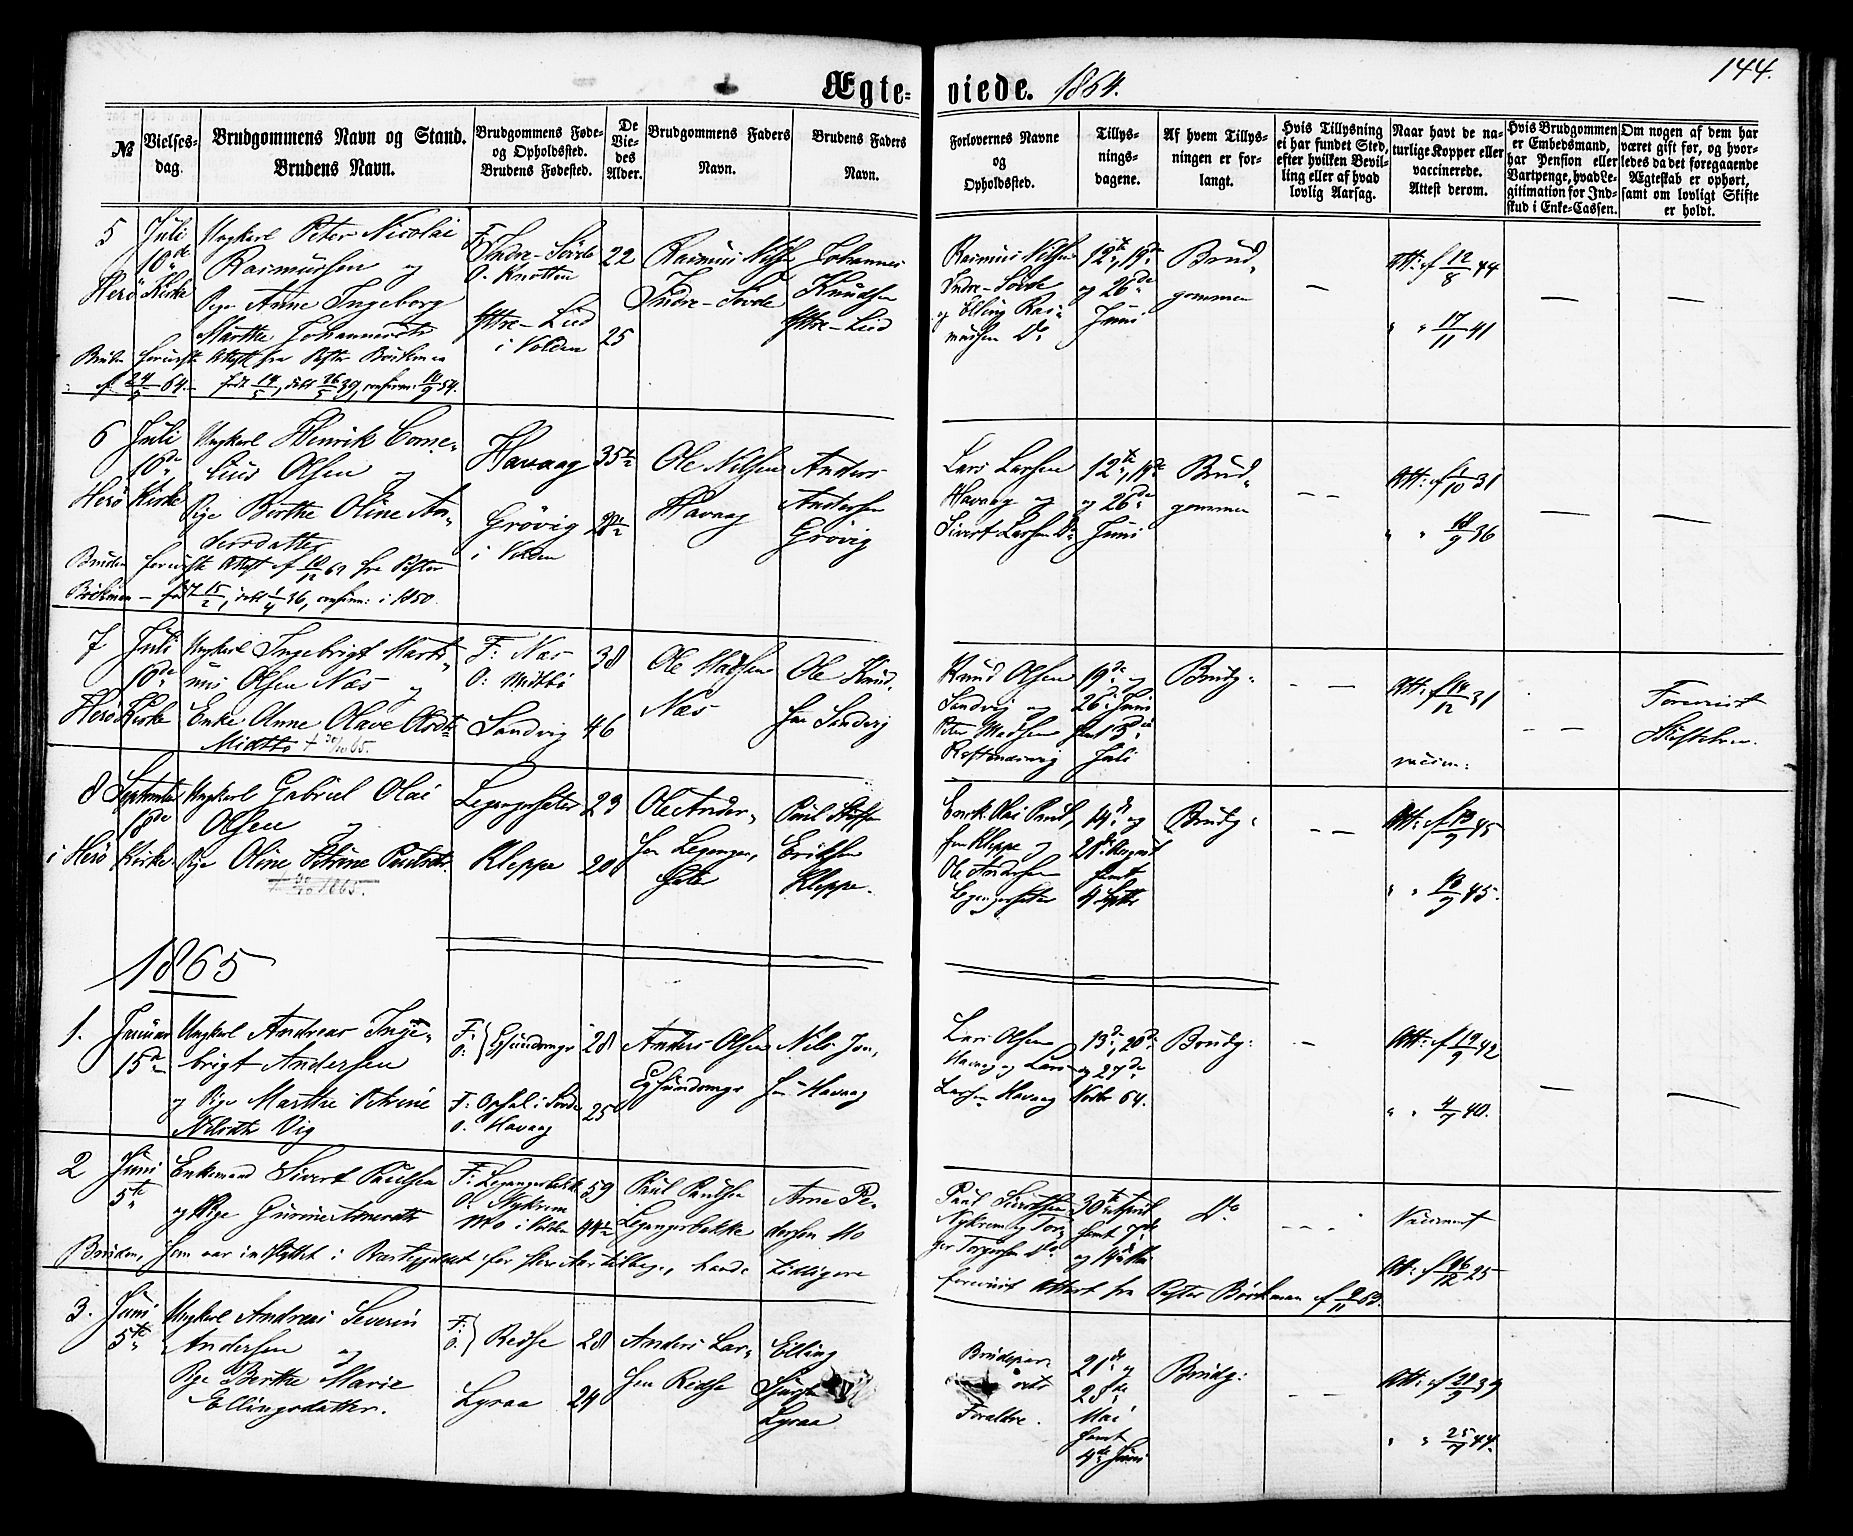 144.
Ægte-viede. 1864.
№
Vielses-dag.
Brudgommens Navn og Stand.
Brudens Navn.
Brudgommens Føde-
og Opholdssted.
Brudens Fødested.
De
Vie-
des
Alder.
Brudgommens Faders
Navn.
Brudens Faders
Navn.
Forlovernes Navne
og
Opholdssted.
Tillys-
nings-
dagene.
Af hvem Tillys-
ningen er for-
langt.
Hvis Tillysning
ei har fundet Sted,
efter hvilken Bevil-
ling eller af hvad
lovlig Aarsag.
Naar havt de na-
turlige Kopper eller
vaccinerede.
Attest derom.
Hvis Brudgommen
er Embedsmand,
har Pension eller
Vartpenge, hvad Le-
gitimation for Ind-
skud i Enke-Cassen.
Om nogen af dem har
været gift før, og hvor-
ledes da det foregaaende
Ægteskab er ophørt,
samt om lovligt Skifte
er holdt.
5
Juli
10de
Herö Kirke
Ungkarl Peter Nicolai
Rasmussen og
Pige Anne Ingeborg
Marthe Johannesdtr
F. Indre-Sövde
O. Knotten
Ytre-Lied
i Volden
22
25
Rasmus Nilssen
Indre-Sövde
Johannes
Knudsen
Ytre-Lied
Rasmus Nilsen
Indre-Sövde
og Elling Ras-
mussen Do
12te, 19de
og 26de
Juni
Brud-
gommen
Att: af 12/8 44
" " 17/11 41
Bruden foreviste Attest fra Pastor Böckman
af 24/ 64. född 14/5, döbt 26/5 39, confirm: 10/9 54.
6
Juli
10de
Herö Kirke
Ungkarl Henrik Corne-
lius Olsen og
Pige Berthe Oline An-
dersdatter
Havaag
Grövig
i Volden
35te
28de
Ole Nilsen
Havaag
Anders
Andersen
Grövig
Lars Larsen
Havaag og
Sivert Larsen Do
12te, 19de
og 26de
Juni
Brud-
gommen
Att: af /10 31
" " 18/9 36
Bruden foreviste Attest af 10/12 63 fra Pastor
Böckman - född 15/2, döbt 1/4 36, confirm: i 1850.
7
Juli
10de
Herö Kirke
Ungkarl Ingebrigt Marti-
nus Olsen Næs og
Enke Anne Olave Olsdtr
Midtbö
F: Næs
O: Midtbö
Sandvig
38
46
Ole Madsen
Næs
Ole Knud-
sen Sandvig
Knud Olsen
Sandvig og
Peter Madsen
19de og
26de Juni
samt 3die
Juli
Brudg:
Att: af 14/12 31
vaccin:
Forevist
Skiftebrev.
8
September
18de
i Herö Kirke
Ungkarl Gabriel Olai
Olsen og
Pige Oline Petrine Paulsdtr.
Leganger­sæter
Kleppe
23
20
Ole Ander-
sen Leganger-
sæter
Paul
Eriksen
Kleppe.
Enok Olai Paul-
sen Kleppe og
Ole Andersen
Legangersæter
14de og
21de August
samt
4 Septbr
Brudg:
Att: af 13/9 45
" " 18/9 45.
1865
1.
Januar
15de
Ungkarl Andreas Inge-
brigt Andersen
og Pige Marthe Petrine
Nilsdtr Vig
F:
O: } Egsundvaag
F: Opsal i Sövde
O. Havaag
28
25
Anders Olsen
Nils Jon-
sen Havaag
Lars Olsen
Havaag og Lars
Larsen Havaag
13de, 20de
og 27de
Novbr 64.
Brudg:
Att: af 19/9 42
" " 4/7 40.
2
Juni
5te
Enkemand Sivert Paulsen
og Pige Gurine Arnesdtr
F: Legangerbakke
O. Nykrem
Mo i Volden
59
44
Paul Paulsen
Legangerbakke
Arne Pe-
dersen Mo
Paul Sivertsen
Nykrem og Tor-
ger Torgersen Do
30te April
samt 7de
og 14de Mai
Do
Vaccineret
Att: af 16/12 25
Bruden, som var indflyttet i Præstegjeldet for flere Aar tilbage, havde tidligere
forevist Attest fra Pastor Böckman af 9/11 53.
3.
Juni
5te
Ungkarl Andreas Severin
Andersen og
Pige Berthe Marie
Ellingsdatter.
F:
O: } Redse
Lyraa
28
24
Anders Lar-
sen Redse
Elling
Lyraa
Brudepar-
rets
Forældre.
21de og
25de
Mai
samt
4de Juni
Brudg:
Att: af 28/9 39
" " 25/9 44.